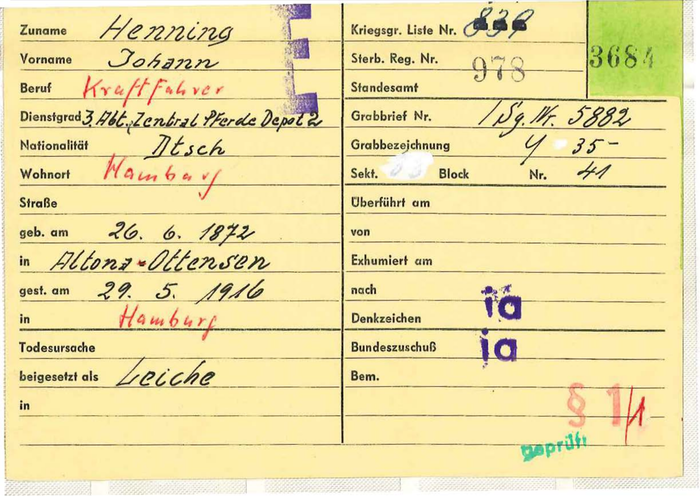 Zuname Henning
Vorname Johann
Beruf Kraftfahrer
Dienstgrad 3. Abt. Zentral Pferde Depot 2
Nationalität Dtsch
Wohnort Hamburg
Straße
geb. am 26. 6. 1872
in Altona-Ottensen
gest. am 29. 5. 1916
in Hamburg
Todesursache
beigesetzt als Leiche
in
Kriegsgr. Liste Nr. 839
Sterb. Reg. Nr. 978
3684
Standesamt
Grabbrief Nr. / Sg. Nr. 5882
Grabbezeichnung Y 35-
Sekt. Block Nr. 41
Überführt am
von
Exhumiert am
nach
Denkzeichen ja
Bundeszuschuß ja
Bem.
§ 1/1
geprüft